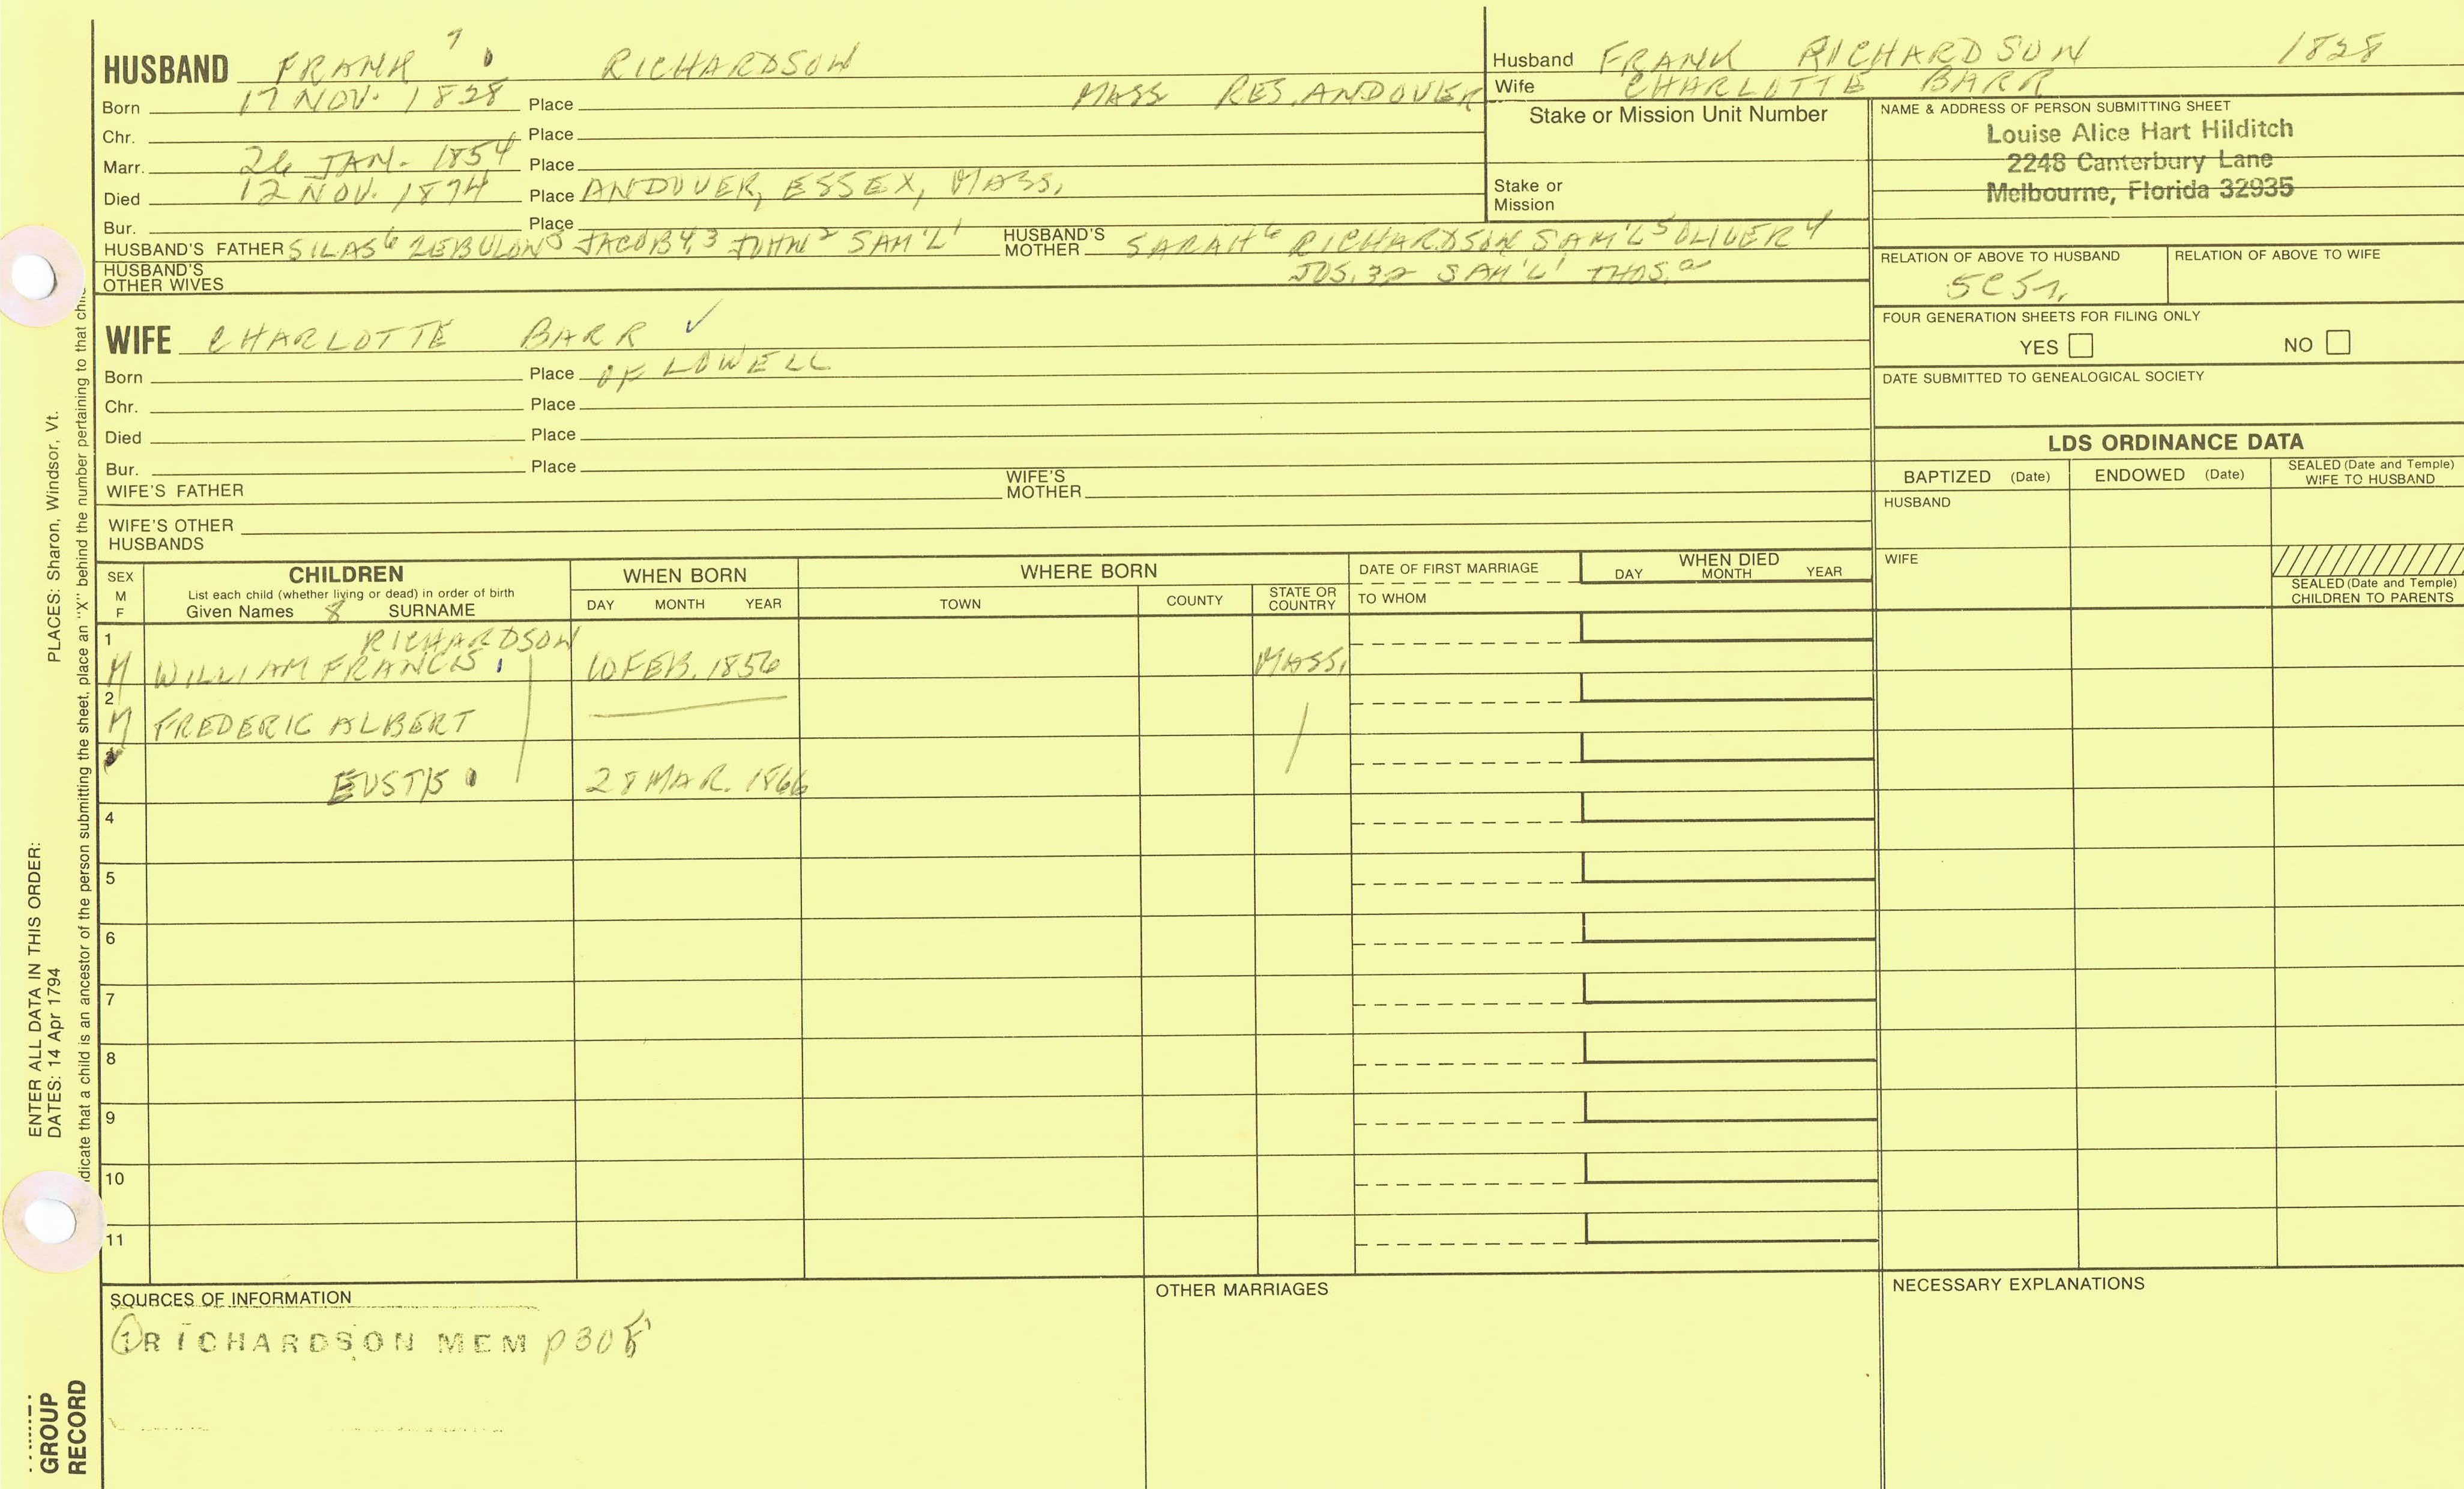 HUSBAND FRANK 7 RICHARDSON
Born 17 NOV. 1828 Place MASS RES. ANDOVER
Chr. Place
Marr. 26 JAN. 1854 Place
Died 12 NOV. 1874 Place ANDOVER, ESSEX, MASS,
Bur. Place
HUSBAND'S FATHER SILAS6 ZEBULON5 JACOB4,3 JOHN2 SAM'L1 HUSBAND'S MOTHER SARAH6 RICHARDSON SAM'L5 OLIVER4
JOS.32 SAM'L1 THOS.a
HUSBAND'S OTHER WIVES
Husband FRANK RICHARDSON 1828
Wife CHARLOTTE BARR
Stake or Mission Unit Number
Stake or Mission
NAME & ADDRESS OF PERSON SUBMITTING SHEET
Louise Alice Hart Hilditch
2248 Canterbury Lane
Melbourne, Florida 32935
RELATION OF ABOVE TO HUSBAND RELATION OF ABOVE TO WIFE
FOUR GENERATION SHEETS FOR FILING ONLY
YES NO
DATE SUBMITTED TO GENEALOGICAL SOCIETY
WIFE CHARLOTTE BARR ✓
Born Place OF LOWELL
Chr. Place
Died Place
Bur. Place
WIFE'S FATHER WIFE'S MOTHER
WIFE'S OTHER HUSBANDS
LDS ORDINANCE DATA
BAPTIZED (Date) ENDOWED (Date) SEALED (Date and Temple) WIFE TO HUSBAND
HUSBAND
WIFE
SEALED (Date and Temple) CHILDREN TO PARENTS
SEX M F
CHILDREN
List each child (whether living or dead) in order of birth
Given Names 8 SURNAME
WHEN BORN
DAY MONTH YEAR
WHERE BORN
TOWN COUNTY STATE OR COUNTRY
DATE OF FIRST MARRIAGE
TO WHOM
WHEN DIED
DAY MONTH YEAR
1 RICHARDSON
M WILLIAM FRANCIS 10 FEB. 1856 MASS,
2
M FREDERIC ALBERT
3
EUSTIS 28 MAR. 1866
4
5
6
7
8
9
10
11
SOURCES OF INFORMATION
1 RICHARDSON MEM
OTHER MARRIAGES
NECESSARY EXPLANATIONS
PLACES: Sharon, Windsor, Vt.
ENTER ALL DATA IN THIS ORDER:
DATES: 14 Apr 1794
dicate that a child is an ancestor of the person submitting the sheet, place an "X" behind the number pertaining to that
GROUP
RECORD